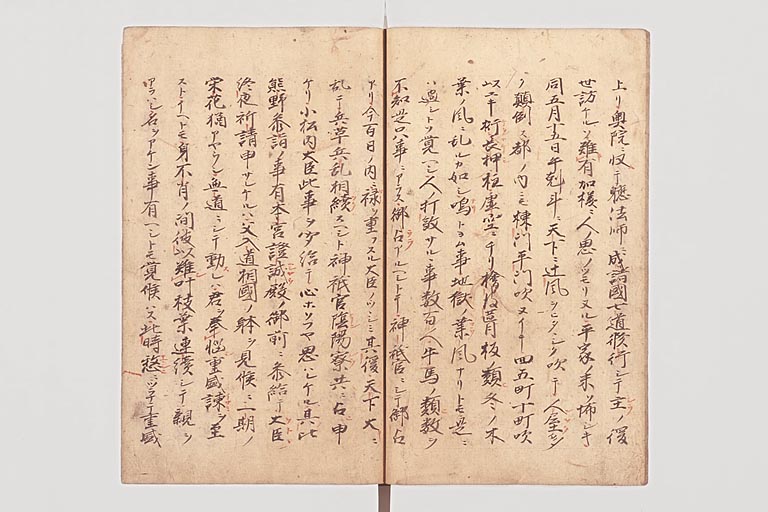 上リ奥院ニ収テ聴法師ニ成諸國七道修行シテ主ノ後
世訪ケルソ難有加様ニ人思ノツモリヌル平家ノ末ソ怖シキ
同五月十五日午剋斗ニ天下ニ辻風ヲヒタヽシク吹テ人屋ヲヽク
ク顛倒ス都ノ内ニモ棟門平門吹ヌイテ四五町十町吹
以テ桁長押柱虚空ニチリ檜皮葺板類冬ノ木
葉ノ風ニ乱ルカ如シ鳴トヨム事地獄ノ業風ナリトモ是ニ
ハ過シトソ覚ヘシ人打殺サルヽ事数百人牛馬ノ類数ヲ
不知是只事ニアラス御占アルヘシトテ神祇官ニシテ御占
アリ今百日ノ内ニ禄ヲ重フスル大臣ノツヽシミ其後ニ天下大ニ
乱テ兵革兵乱相続スヘシト神祇官陰陽寮共ニ占申
ケリ小松内大臣此事ヲ聞給テ心ホソクヤ思ハレケル其比
熊野参詣ノ事有本宮證誠殿ノ御前ニ参給テ大臣
終夜祈請申サレケルハ父入道相國ノ躰ヲ見候ニ一期ノ
栄花猶アヤウシ無道ニシテ動レハ君ヲ奉悩重盛諫ヲ至
ストイヘトモ身不肖ノ間彼以難叶枝葉連続シテ親ヲ
アラハシ名ヲアケン事有ヘシトモ覚候ハス此時憖ニツラナテ重盛